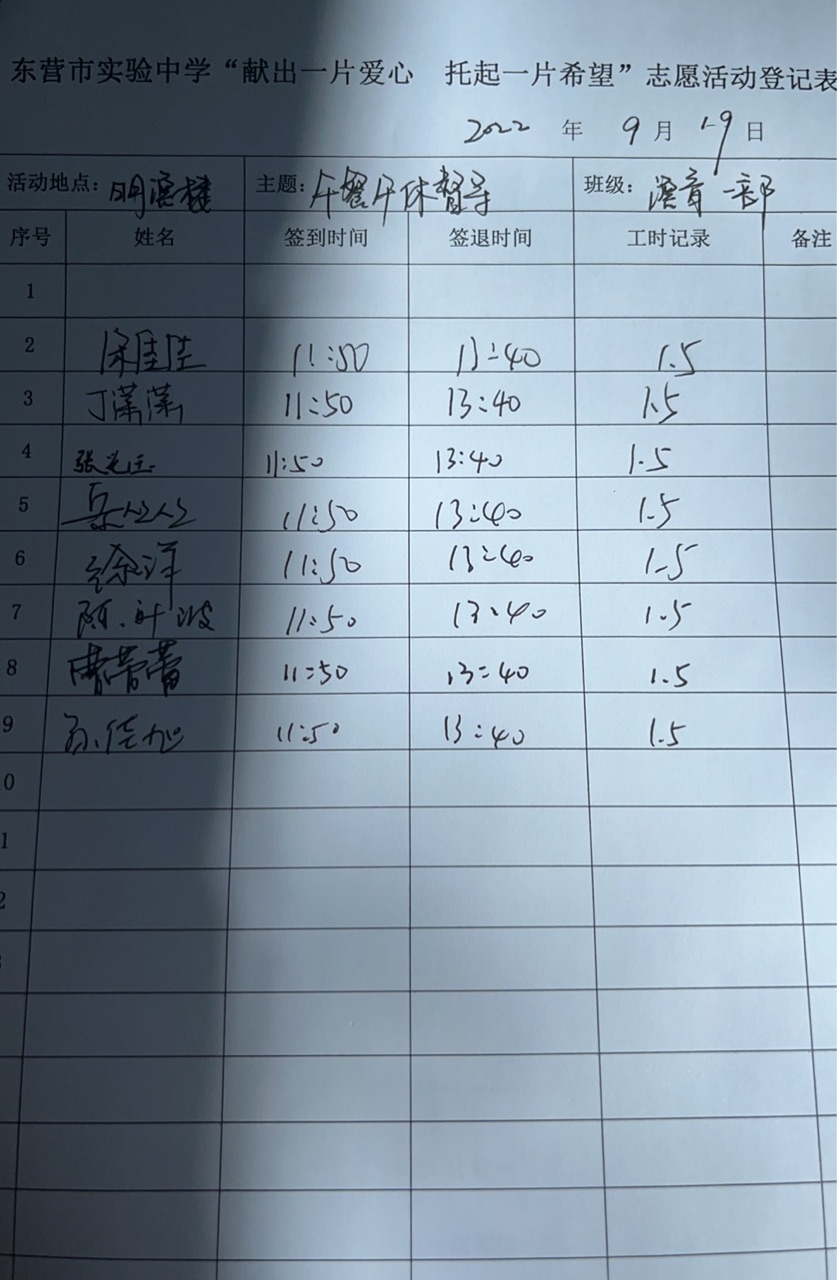 东营市实验中学“献出一片爱心 托起一片希望”志愿活动登记表
2022 年 9 月 19 日
活动地点：明德楼 主题：午餐午休督导 班级：一部
序号 姓名 签到时间 签退时间 工时记录 备注
1
2 11:50 13:40 1.5
3 丁潇潇 11:50 13:40 1.5
4 11:50 13:40 1.5
5 11:50 13:40 1.5
6 徐洋 11:50 13:40 1.5
7 11:50 13:40 1.5
8 11:50 13:40 1.5
9 孙佳旭 11:50 13:40 1.5
0
1
2